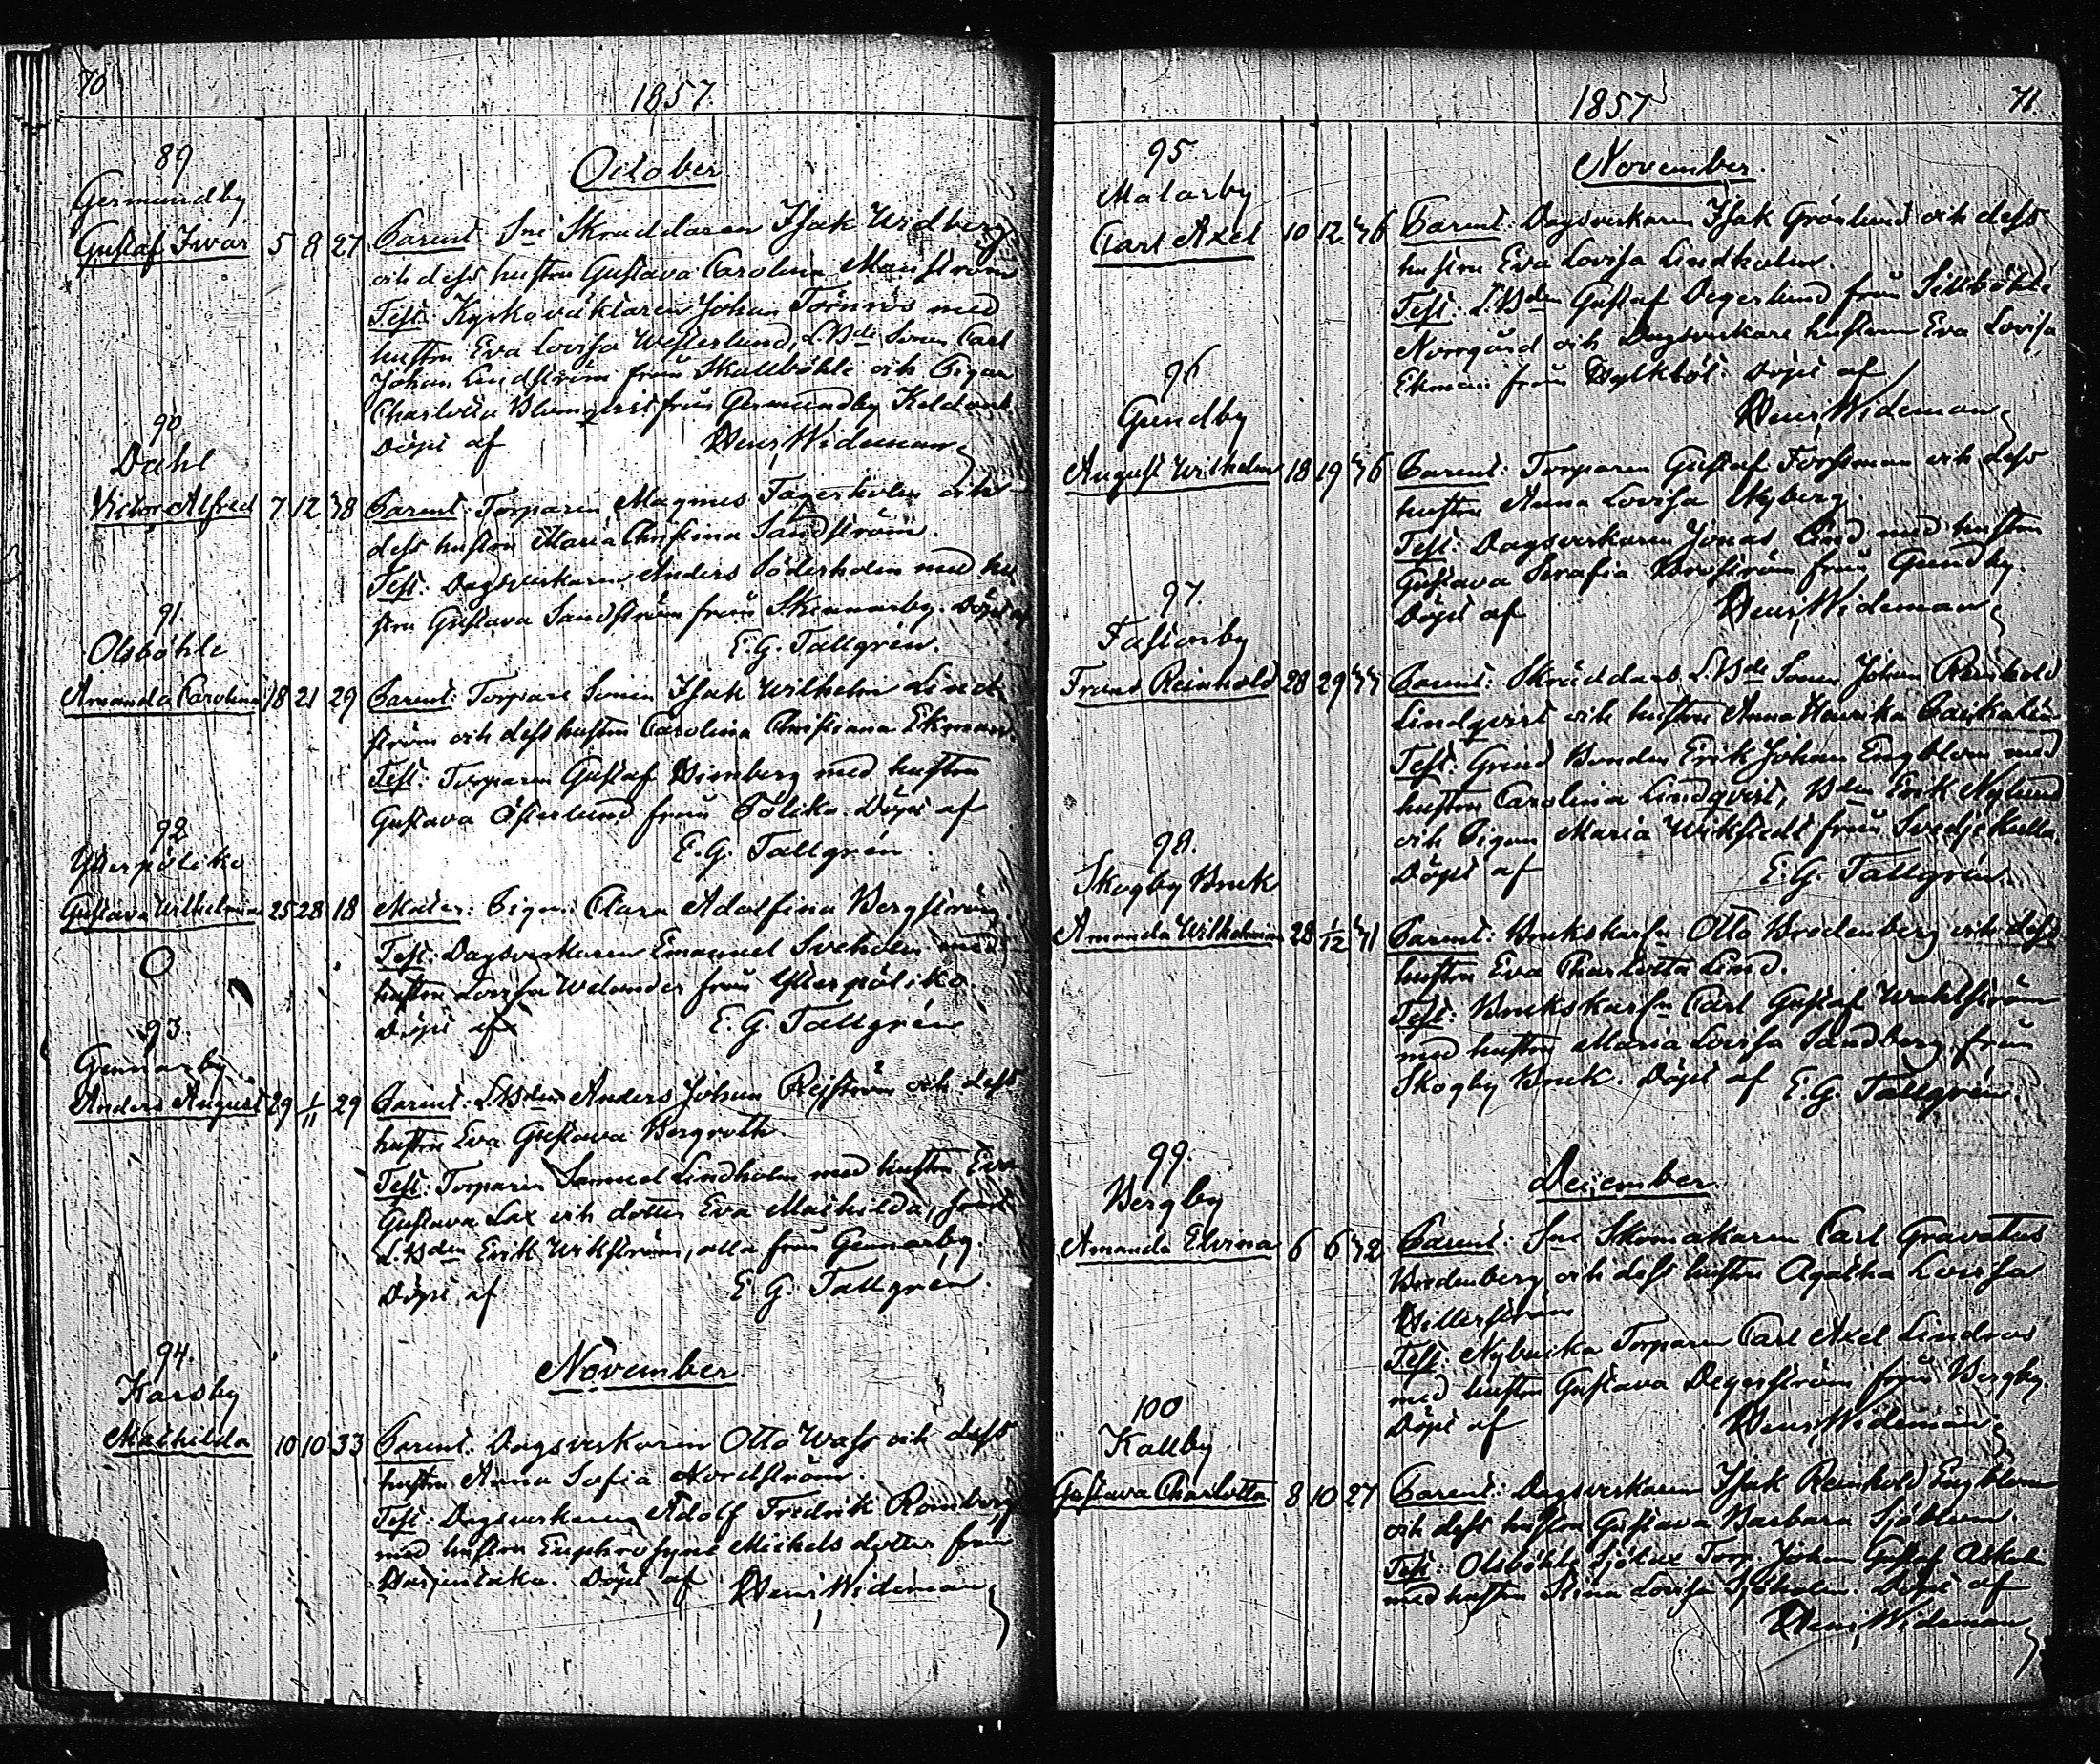 70
1857.
October
89
Germundby
Gustaf Ivar 5 8 27 Parent: Sne Skräddaren Isak Widberg
och dess hustru Gustava Carolina Manström
Test: Kyrkoväktaren Johan Törnros med
hustru Eva Lovisa Westerlund, L.Bde Sonen Carl
Johan Lindström från Skallböhle och Pigan
Charlotta Blomqvist från Germundby
Döpt af Henr. Wideman
90
Dahl
Victor Alfred 7 12 38 Parent: Torparen Magnus och
dess hustru Maria Christina Sandström.
Test: Dagsverkaren Anders Söderholm med hu
stru Gustava Sandström från Skinnarby. Döpt af
E. G. Tallgrén.
91.
Olsböhle
Amanda Carolina 18 21 29 Parent: Torpare Sonen Isak Wilhelm Lind
ström och dess hustru Carolina Christiana Ekman.
Test: Torparen Gustaf med hustru
Gustava Österlund från Pölika. Döpt af
E. G. Tallgrén.
92
Ytterpöliko
Gustava Wilhelmina 25 28 18 Mater: Pigan Clara Adolfina Bergström
Test: Dagsverkaren Emanuel Sveholm med
hustru Lovisa Welander från Ytterpöliko.
Döpt af E. G. Tallgrén
93.
Gennarby
Anders August 29 1/11 29 Parent: L.Bden Anders Johan och dess
hustru Eva Gustava Bergroth.
Test: Torparen Samuel Lindholm med hustru Eva
Gustava Lax och dotter Eva Mathilda, samt
L.Bden Erik Wikström, alla från Gennarby.
Döpt af E. G. Tallgrén.
94.
November.
Karsby
Mathilda 10 10 33 Parent: Dagsverkaren Otto Wass och dess
hustru Anna Sofia Nordström.
Test: Dagsverkaren Adolf Fredrik Romberg
med hustru Euphrosyne Michelsdotter från
Döpt af Henr. Wideman
1857 71.
95.
November.
Malarby
Carl Axel 10 12 36 Parent: Dagsverkaren Isak Grönlund och dess
hustru Eva Lovisa Lindholm.
Test: L.Bden Gustaf Degerlund från Sillböhle
Norrgård och Dagsverkare hustrun Eva Lovisa
Ekman från Döpt af
Henr. Wideman
96
Gundby
August Wilhelm 18 19 36 Parent: Torparen Gustaf Forsman och dess
hustru Anna Lovisa Nyberg.
Test: Dagsverkaren Jonas Lind med hustru
Gustava Serafia från Gundby.
Döpt af Henr. Wideman
97.
Fastarby
Frans Reinhold 28 29 37 Parent: Skräddars L.Bde Sonen Johan Reinhold
Lindqvist och hustru Anna Henrika
Test: Grind Bonden Erik Johan Engblom med
hustru Carolina Lindqvist, Bden Erik Nylund
och Pigan Maria Wikstedt från Svedjekulla
Döpt af E. G. Tallgrén.
98.
Skogby Bruk
Amanda Wilhelmina 28 1/12 31 Parent: Brukskarln Otto Bredenberg och dess
hustru Eva Charlotta Lind.
Test: Brukskarln Carl Gustaf Wahlström
med hustru Maria Lovisa Sandberg från
Skogby Bruk. Döpt af E. G. Tallgrén.
99.
December
Bergby
Amanda Elvina 6 6 32 Parent: Sne Skomakaren Carl Gravatus
Bredenberg och dess hustru Agatha Lovisa
Hillerström
Test: Nybacka Torparen Carl Axel Lindroos
med hustru Gustava Degerström från Bergby
Döpt af Henr. Wideman
100
Kallby
Gustava Charlotta 8 10 27 Parent: Dagsverkaren Isak Reinhold Engblom
och dess hustru Gustava Barbara Sjöblom.
Test: Olsböhle Torp. Johan Gustaf
med hustru Stina Lovisa Sjöholm. Döpt af
Henr. Wideman